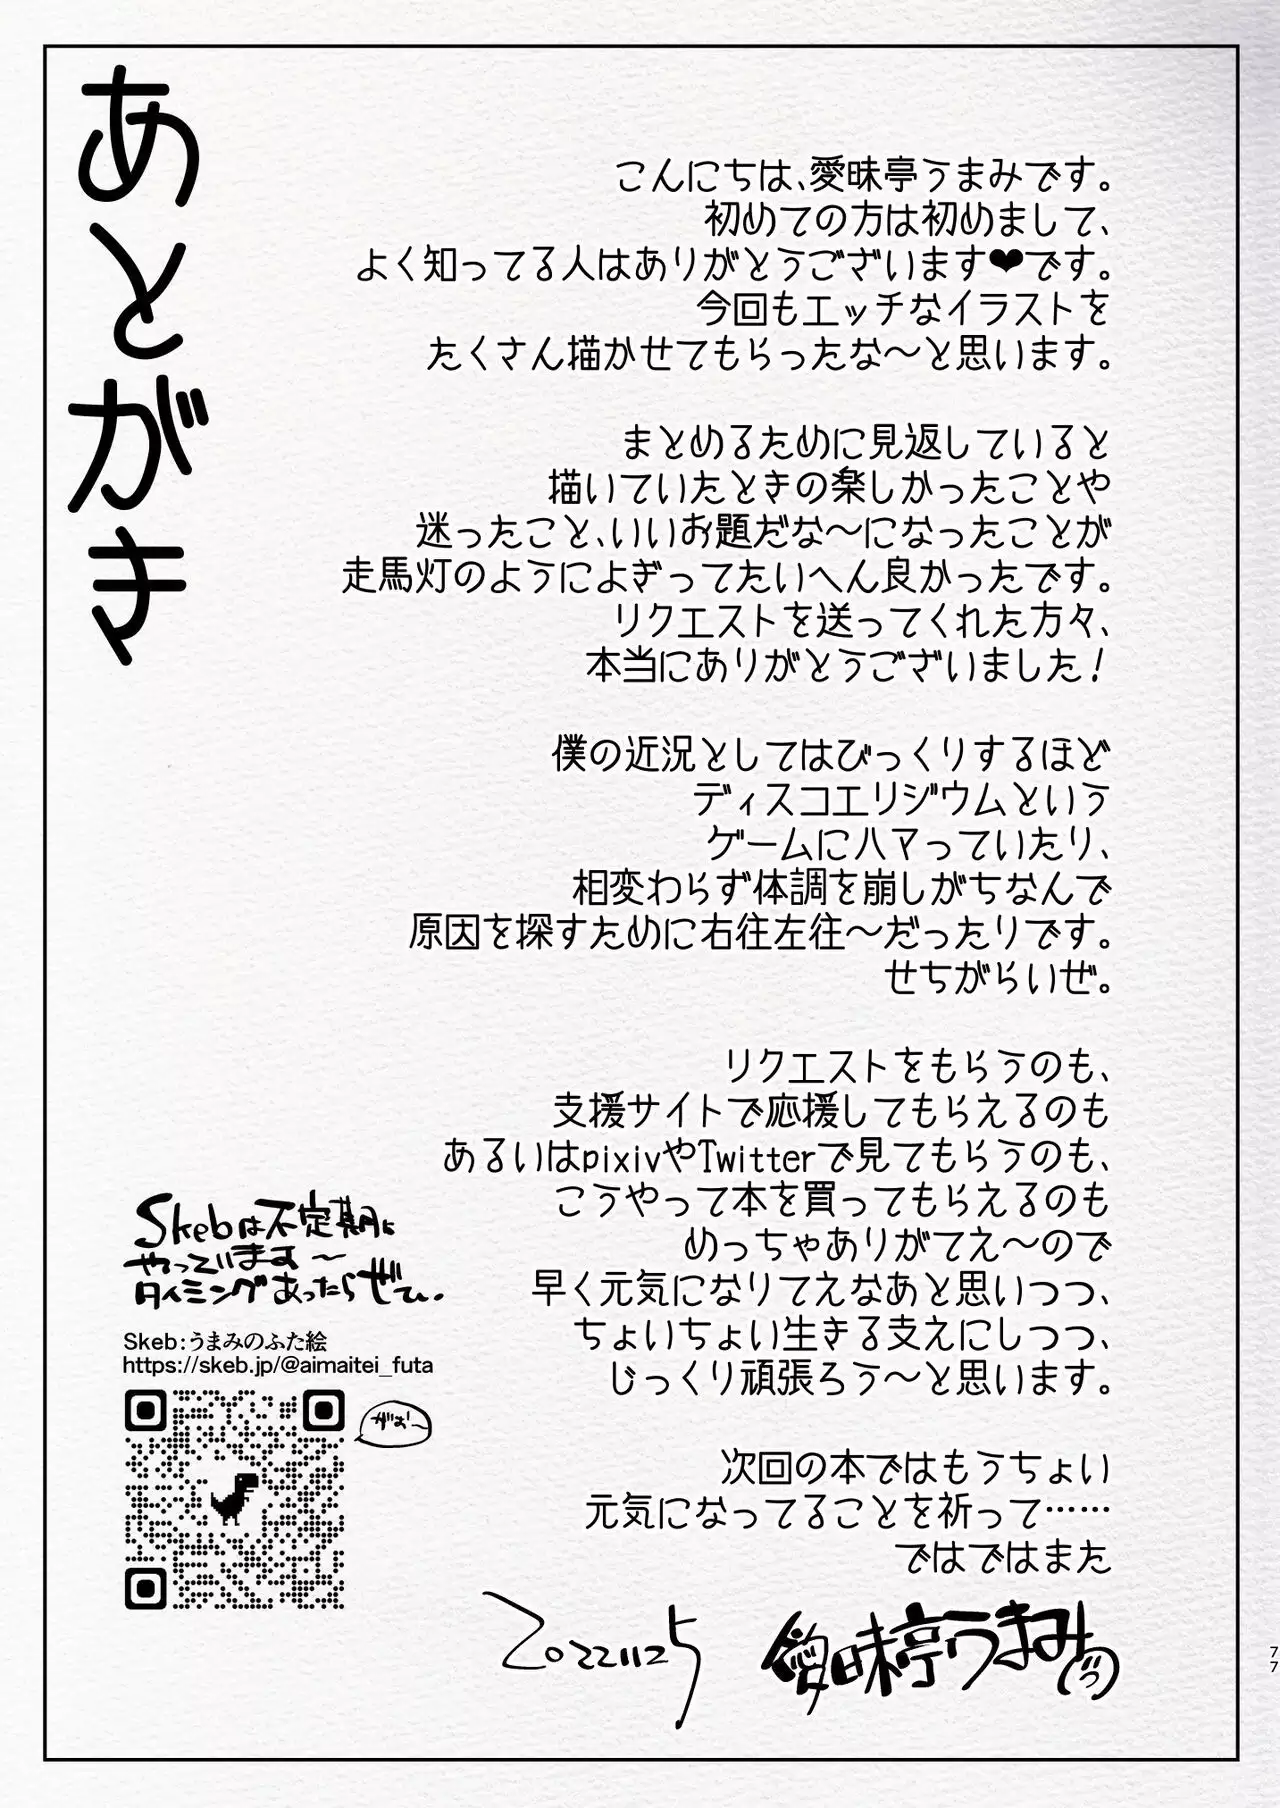 あとがき
こんにちは、愛昧亭うまみです。
初めての方は初めまして、
よく知ってる人はありがとうございます❤です。
今回もエッチなイラストを
たくさん描かせてもらったな〜と思います。
まとめるために見返していると
描いていたときの楽しかったことや
迷ったこと、いいお題だな〜になったことが
走馬灯のようによぎってたいへん良かったです。
リクエストを送ってくれた方々、
本当にありがとうございました！
僕の近況としてはびっくりするほど
ディスコエリジウムという
ゲームにハマっていたり、
相変わらず体調を崩しがちなんで
原因を探すために右往左往〜だったりです。
せちがらいぜ。
リクエストをもらうのも、
支援サイトで応援してもらえるのも
あるいはpixivやTwitterで見てもらうのも、
こうやって本を買ってもらえるのも
めっちゃありがてえ〜ので
早く元気になりてえなあと思いつつ、
ちょいちょい生きる支えにしつつ、
じっくり頑張ろう〜と思います。
次回の本ではもうちょい
元気になってることを祈って……
ではではまた
20221125
愛昧亭うまみ
Skebは不定期に
やっています〜
タイミングあったらぜひ.
Skeb：うまみのふた絵
https://skeb.jp/@aimaitei_futa
がお〜
77